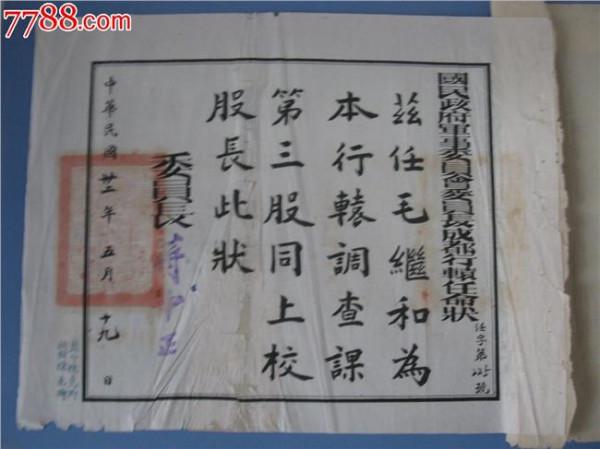 7788.com
國民政府軍事委員會委員長成都行轅任命狀
任字第225號
茲任毛繼和為
本行轅調查課
第三股同上校
股長此狀
委員長 蔣中正
中華民國廿五年五月十九日